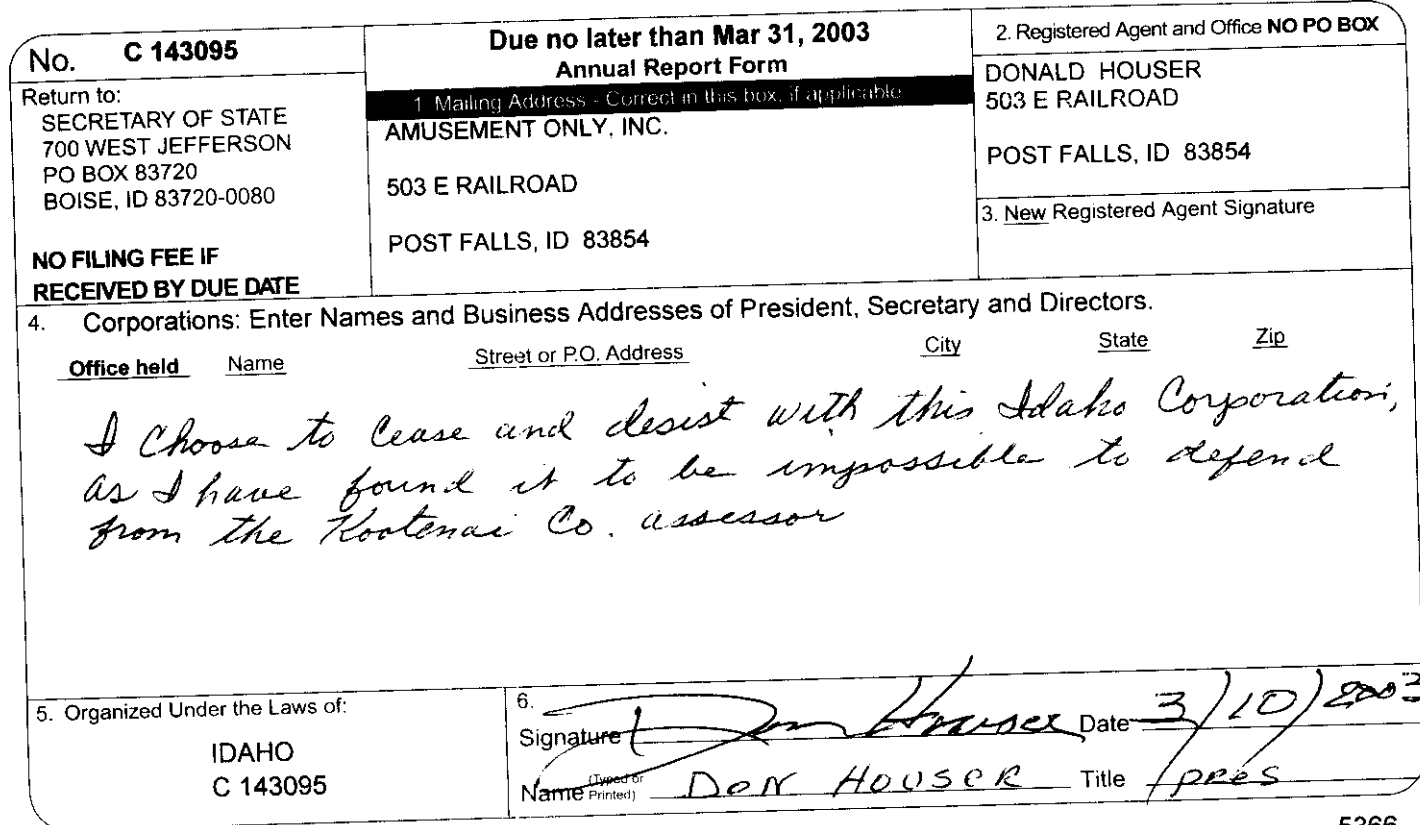 No. C 143095
Return to:
SECRETARY OF STATE
700 WEST JEFFERSON
PO BOX 83720
BOISE, ID 83720-0080
NO FILING FEE IF
RECEIVED BY DUE DATE
Due no later than Mar 31, 2003
Annual Report Form
1 Mailing Address - Correct in this box, if applicable
AMUSEMENT ONLY, INC.
503 E RAILROAD
POST FALLS, ID 83854
2. Registered Agent and Office NO PO BOX
DONALD HOUSER
503 E RAILROAD
POST FALLS, ID 83854
3. New Registered Agent Signature
4. Corporations: Enter Names and Business Addresses of President, Secretary and Directors.
Office held Name Street or P.O. Address City State Zip
I Choose to Cease and desist with this Idaho Corporation,
as I have found it to be impossible to defend
from the Kootenai Co. assessor
5. Organized Under the Laws of:
IDAHO
C 143095
6.
Signature Don Houser Date 3/10/2003
Name (Typed or Printed) DON HOUSER Title pres
5366